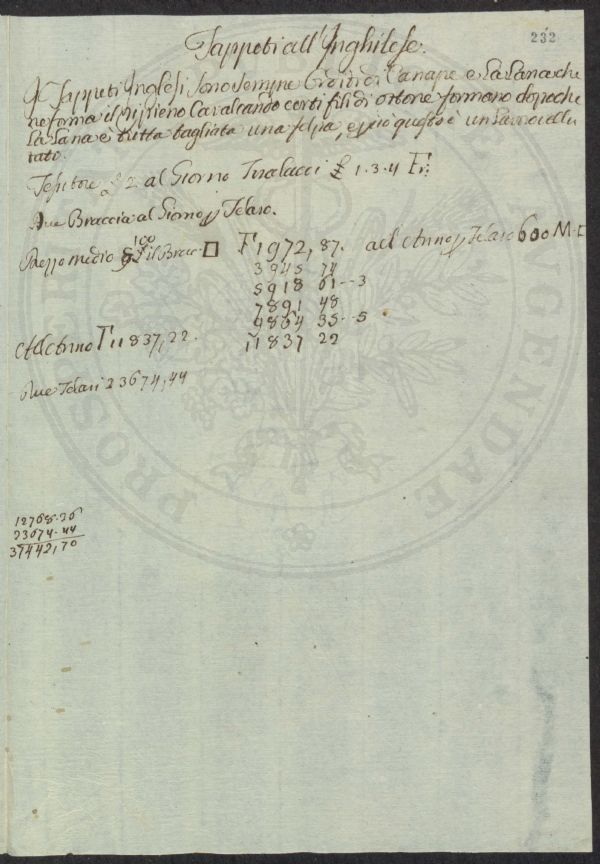 232
Tappeti all'Inghilese.
I Tappeti Inglesi sono sempre Orditi di Canape e La Lana che
ne forma il ripieno Cavalcando certi fili di ottone formano dopo che
La Lana è tutta tagliata una felpa, e per questo è un Lavoro vellu
tato.
Tessitore £ 2 al Giorno Tiralacci £ 1.3.4 Fr:
Due Braccia al Giorno p Telaro.
Prezzo medio 100 il Bracc □ F 1972,87. all Anno p Telaro 600 M
3945 74
5918 61--3
7891 48
9864 35--5
11837 22
All Anno F 11837,22.
Due Telari 23674,44
12768.26
23674.44
37442,70
PROSPERITATI AUGENDAE